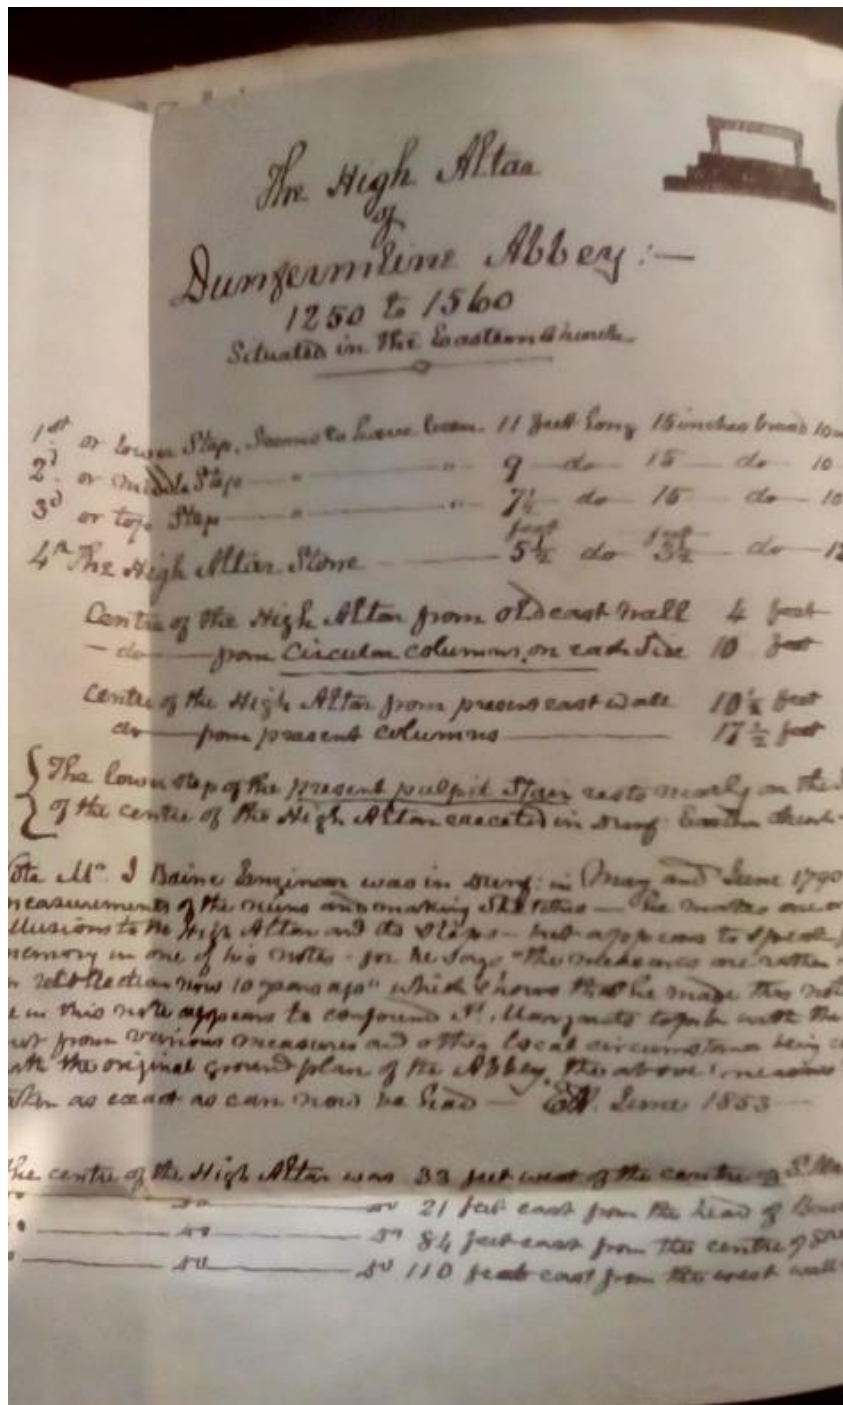 The High Altar
of
Dunfermline Abbey:—
1250 to 1560
Situated in the Eastern Church
1st or lower Step, Seems to have been 11 feet long 15 inches broad 10
2d or middle Step — " — " 9 — do — 15 — do — 10
3d or top Step — " — " 7½ — do — 15 — do — 10
4th The High Altar Stone — 5½ feet do — 3½ feet — do — 12
Centre of the High Altar from old east wall 4 feet
— do — from Circular columns, on each side 10 feet
Centre of the High Altar from present east wall 10½ feet
do — from present columns — 17½ feet
The lower step of the present pulpit stair rests nearly on the
of the centre of the High Altar erected in Dunf: Eastern Church
Mr. J Baine Enginear was in Dunf: in May and June 1790
measurements of the ruins and making Sketches — he makes one or
allusions to the High Altar and its steps — but appears to speak
memory in one of his notes - for he says "the measures are rather
recollection now 10 years ago" which shows that he made this
in this note appears to confound St. Margarets tomb with the
from various measures and other local circumstances being
the original ground plan of the Abbey, the above measures
as exact as can now be had — EH. June 1853 —
the centre of the High Altar was 33 feet west of the centre of St. Ma
do — do 21 feet east from the head of
do — do 84 feet east from the centre of
do — do 110 feet east from the west wall